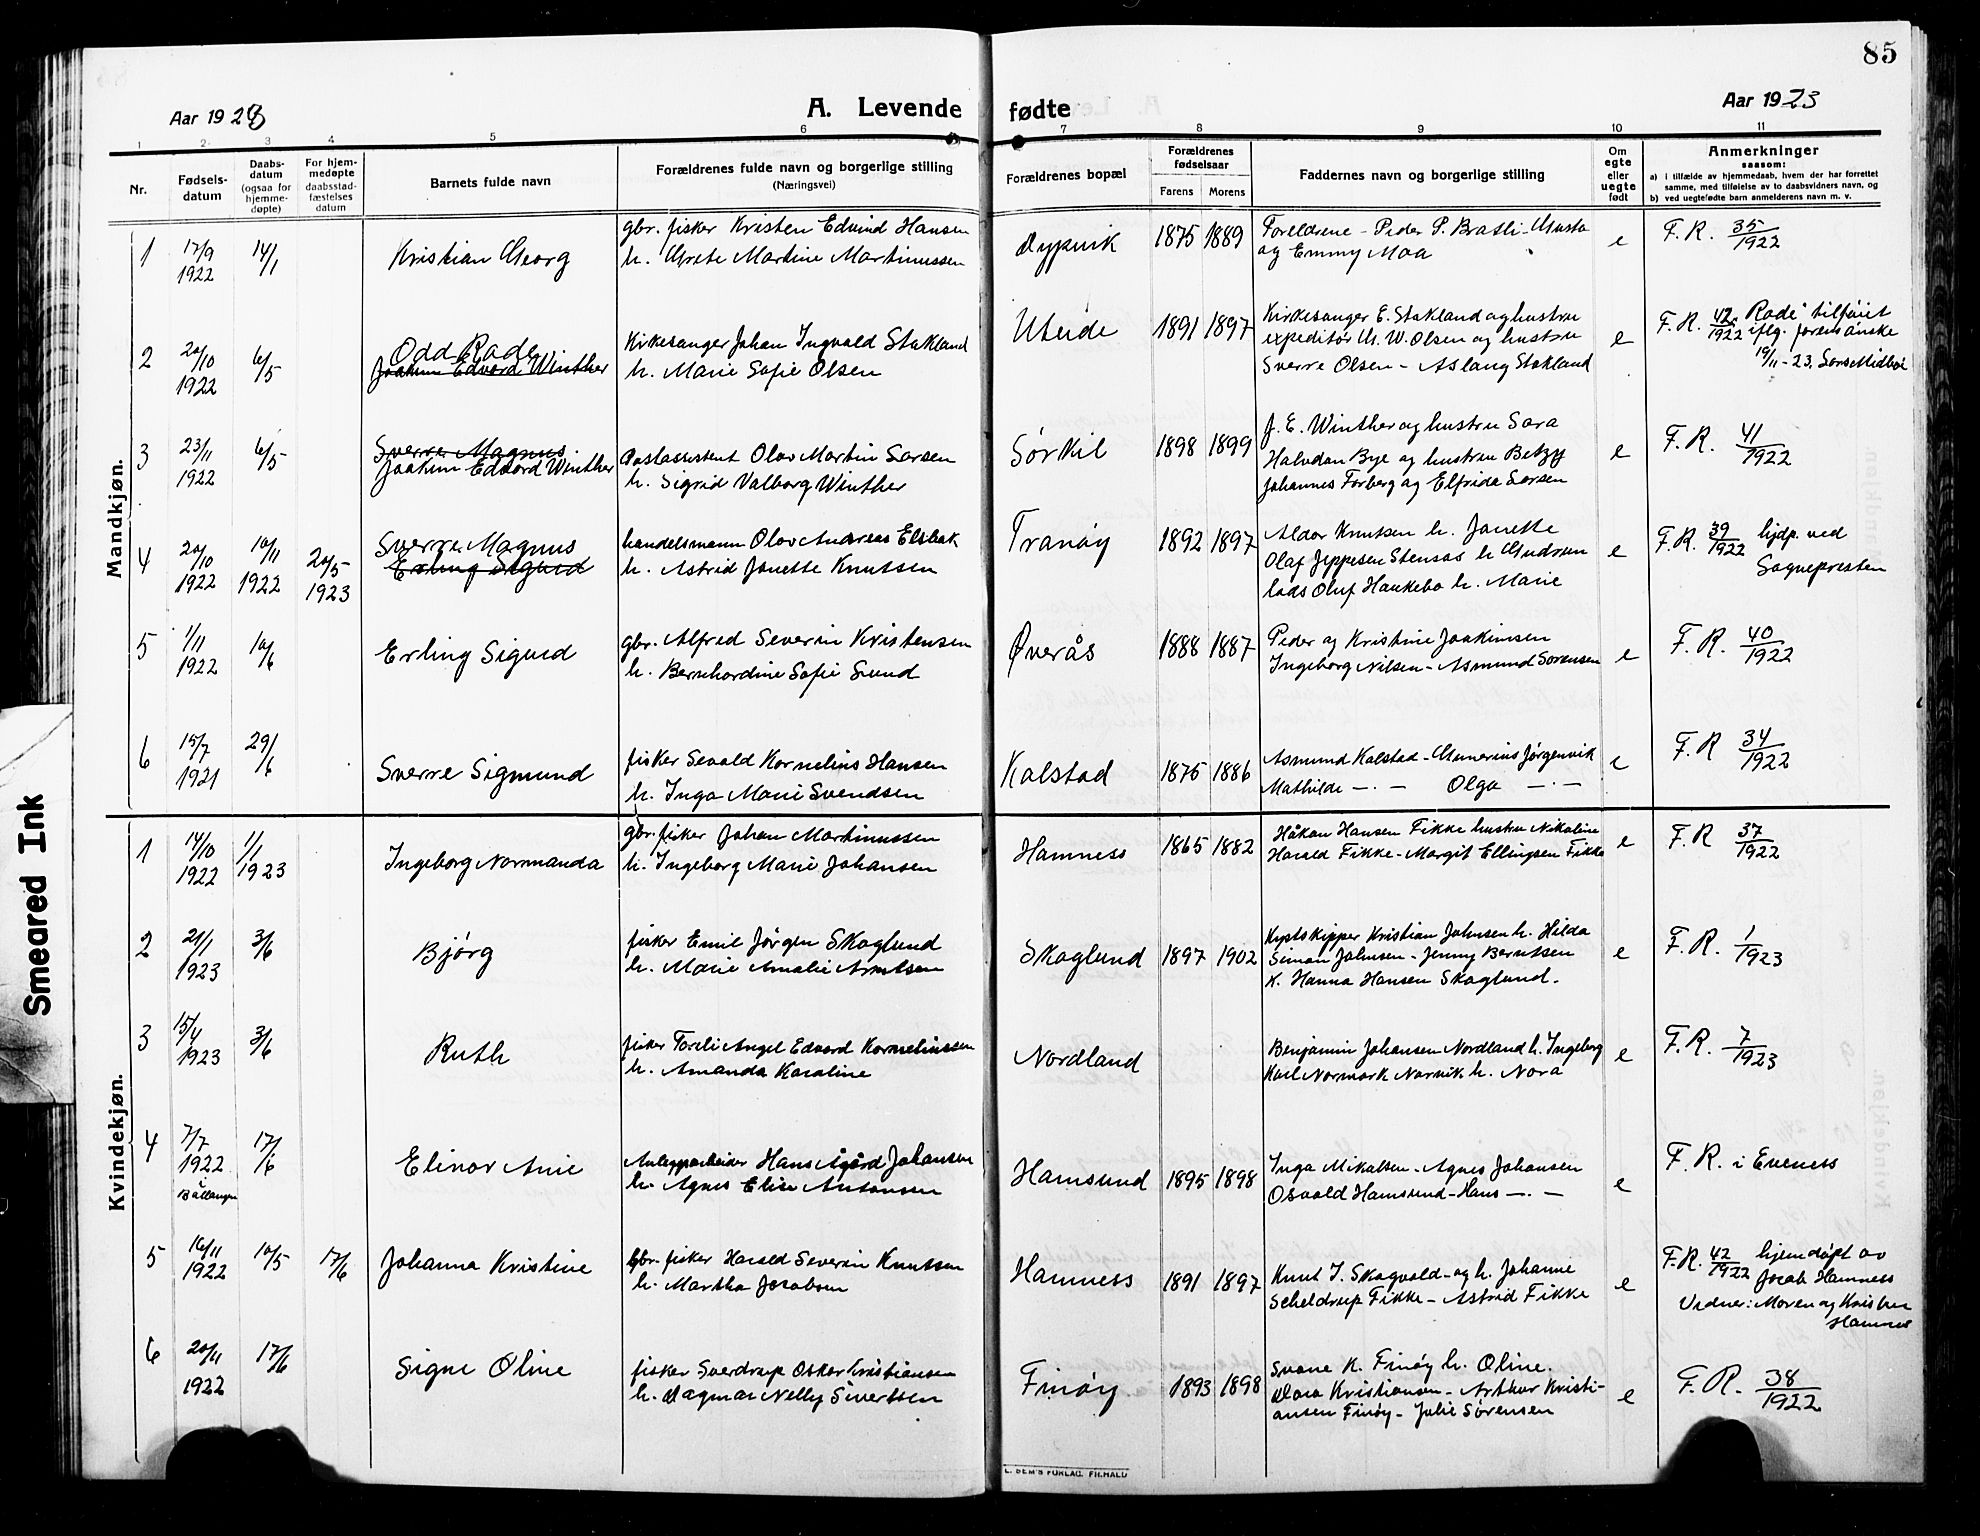 85
Aar 1923
A. Levende fødte
Aar 1923
1 2 3 4 5 6 7 8 9 10 11
Nr.
Fødsels-
datum
Daabs-
datum
(ogsaa for
hjemme-
døpte)
For hjem-
medøpte
daabsstad-
fæstelses
datum
Barnets fulde navn
Forældrenes fulde navn og borgerlige stilling
(Næringsvei)
Forældrenes bopæl
Forældrenes
fødselsaar
Farens Morens
Faddernes navn og borgerlige stilling
Om
egte
eller
uegte
født
Anmerkninger
saasom:
a) i tilfælde av hjemmedaab, hvem der har forrettet
samme, med tilføielse av to daabsvidners navn, og
b) ved uegtefødte barn anmelderens navn m. v.
Mandkjøn.
1 17/9 1922 14/1 Kristian Georg
gbr. fisker Kristen Edvind Hansen
h. Grete Martine Martinussen
Dypvik 1875 1889
Foreldrene - Peder P. Bratli
og Emmy Moa
e F. R. 35/1922
2 20/10 1922 6/5 Odd Rade
Joakim Edvard Winther
Kirkesanger Johan Ingvald Stokland
h. Marie Sofie Olsen
Uteide 1891 1897
Kirkesanger E. Stokland og hustru
expeditør W. Olsen og hustru
Sverre Olsen - Aslaug Stokland
e F. R. 42/1922 "Rade" tilføiet
iflg. foreldres ønske
19/11-23.
3 23/11 1922 6/5 Sverre Magnus
Joakim Edvard Winther
Postassistent Olav Martin Larsen
h. Sigrid Valborg Winther
Sørkil 1898 1899
J. E. Winther og hustru Sara
Halvdan Bye og hustru Betzy
Johannes Forberg og Elfrida Larsen
e F. R. 41/1922
4 20/10 1922 10/11 1922 20/5 1923 Sverre Magnus
Erling Sigurd
handelsmann Olav Andreas Elsbak
h. Astrid Janette Knutsen
Tranøy 1892 1897
Aldor Knutsen h. Janette
Olaf Jeppesen Stensås h. Gudrun
lods Oluf Haukebø h. Marie
e F. R. 39/1922 hjdp. ved
Sognepresten
5 1/11 1922 10/6 Erling Sigurd
gbr. Alfred Severin Kristensen
h. Bernhardine Sofie Lund
Øverås 1888 1887
Peder og Kristine Joakimsen
Ingeborg Nilsen - Asmund Sørensen
e F. R. 40/1922
6 15/7 1921 29/6 Sverre Sigmund
fisker Sevald Kornelius Hansen
h. Inga Marie Svendsen
Kalstad 1875 1886
Asmund Kalstad - Gunerius Jørgenvik
Mathilde — . — Olga — . —
e F. R 34/1922
Kvindekjøn.
1 14/10 1922 1/1 1923 Ingeborg Normanda
gbr. fisker Johan Martinussen
h. Ingeborg Marie Johansen
Hamness 1865 1882
Håkon Hansen Fikke hustru Nikoline
Harald Fikke - Margit Ellingsen Fikke
e F. R 37/1922
2 21/1 1923 3/6 Bjørg
fisker Emil Jørgen Skoglund
h. Marie Amalie Arntsen
Skoglund 1897 1902
Kystskipper Kristian Johnsen h. Hilda
Simon Johnsen - Jenny Berntsen
K. Hanna Hansen Skoglund.
e F. R. 1/1923
3 15/4 1923 3/6 Ruth
fisker Toreli Angel Edvard Korneliussen
h. Amanda Karoline
Nordland
Benjamin Johansen Nordland h. Ingeborg
Karl Normark Narvik h. Nora
e F. R. 7/1923
4 7/7 1922 Ballangen 17/6 Elinor Anie
Anleggsarbeider Hans Ågård Johansen
h. Agnes Elise Antonsen
Hamsund 1895 1898
Inga Mikalsen - Agnes Johansen
Osvald Hamsund - Hans — . —
e F. R. i Eveness
5 16/11 1922 10/5 17/6 Johanna Kristine
Gbr. fisker Harald Severin Knutsen
h. Martha Jacobsen
Hamness 1891 1897
Knut J. Skogvold - og h. Johanne
Scheldrup Fikke - Astrid Fikke
e F. R. 42/1922 hjemdøpt av
Jacob Hamness
Vidner: Moren og Kristian
Hamnes
6 20/11 1922 17/6 Signe Oline
fisker Sverdrup Oskar Kristiansen
h. Dagmar Nelly Sivertsen
Finøy 1893 1898
Svane K. Finøy h. Oline.
Dora Kristiansen - Arthur Kristi-
ansen Finøy - Julie Sørensen
e F. R. 38/1922
Smeared Ink